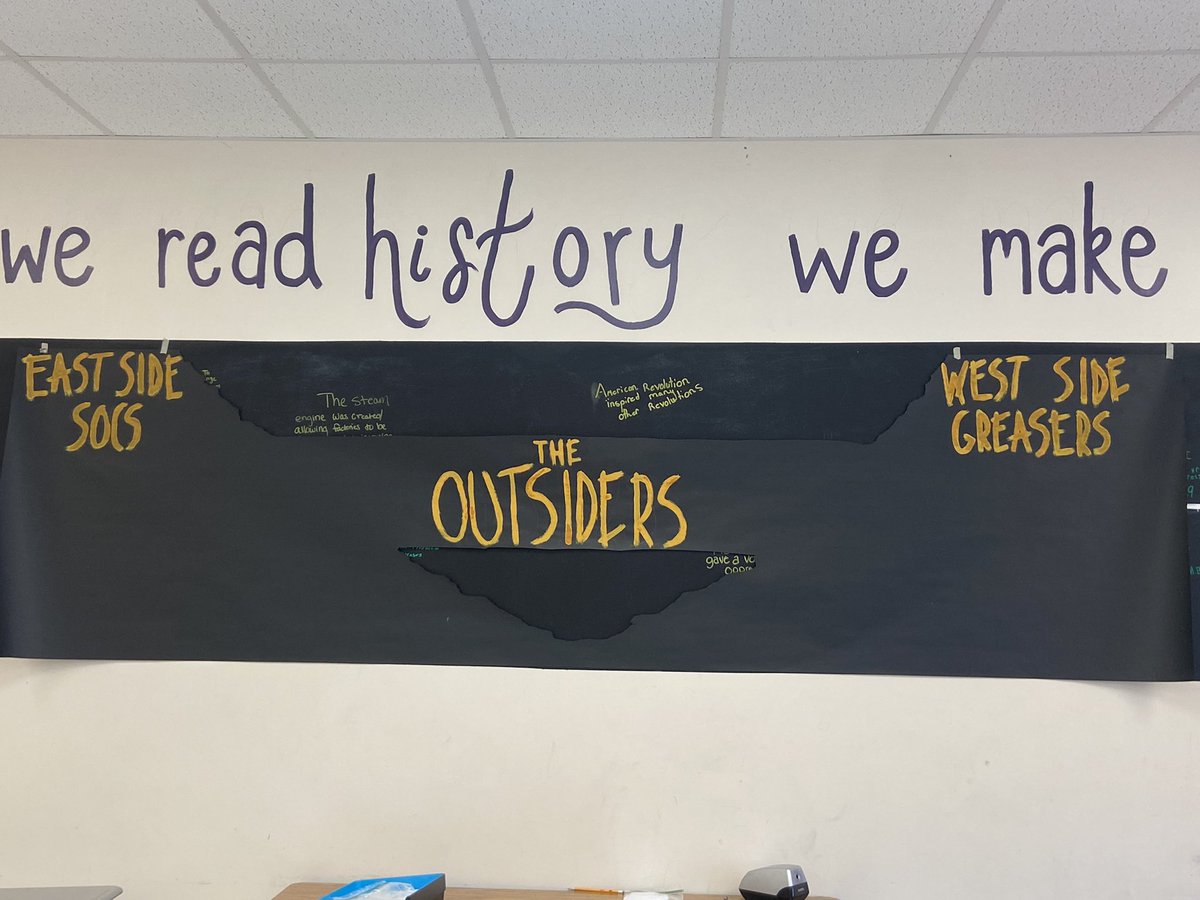 we read history we make
EAST SIDE
SOCS
WEST SIDE
GREASERS
The steam
engine was created
allowing factories to be
American Revolution
inspired many
other Revolutions
THE
OUTSIDERS
gave a vo